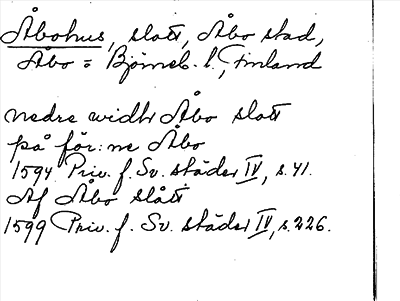 Åbohus, slott, Åbo stad,
Åbo = Björneb. l., Finland
nedre widh Åbo slott
på för:ne Åbo
1594 Priv. f. Sv. städer IV, s. 41.
Af Åbo slått
1599 Priv. f. Sv. städer IV, s. 226.